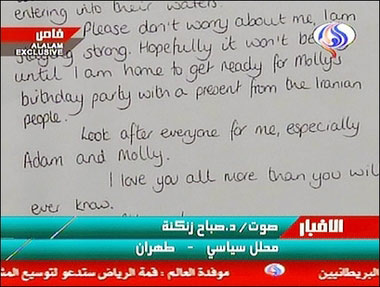 entering into their waters.
خاص
ALALAM
EXCLUSIVE
Please don't worry about me, I am
staying strong. Hopefully it won't be
until I am home to get ready for Molly's
birthday party with a present from the Iranian
people.
Look after everyone for me, especially
Adam and Molly.
I love you all more than you will
ever know.
الاخبار
صوت/ د.صباح زنكنة
محلل سياسي - طهران
البريطانيين
موفدة العالم : قمة الرياض ستدعو لتوسيع